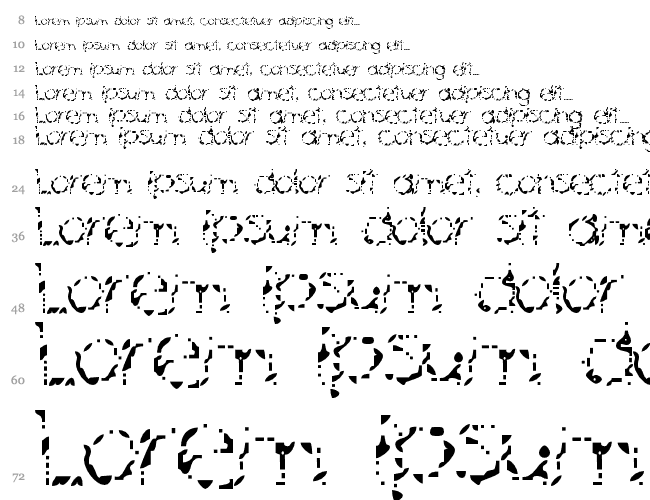 8 Lorem ipsum dolor sit amet, consectetuer adipiscing elit...
10 Lorem ipsum dolor sit amet, consectetuer adipiscing elit...
12 Lorem ipsum dolor sit amet, consectetuer adipiscing elit...
14 Lorem ipsum dolor sit amet, consectetuer adipiscing elit...
16 Lorem ipsum dolor sit amet, consectetuer adipiscing elit...
18 Lorem ipsum dolor sit amet, consectetuer adipiscing
24 Lorem ipsum dolor sit amet, consectet
36 Lorem ipsum dolor sit ame
48 Lorem ipsum dolor
60 Lorem ipsum do
72 Lorem ipsum